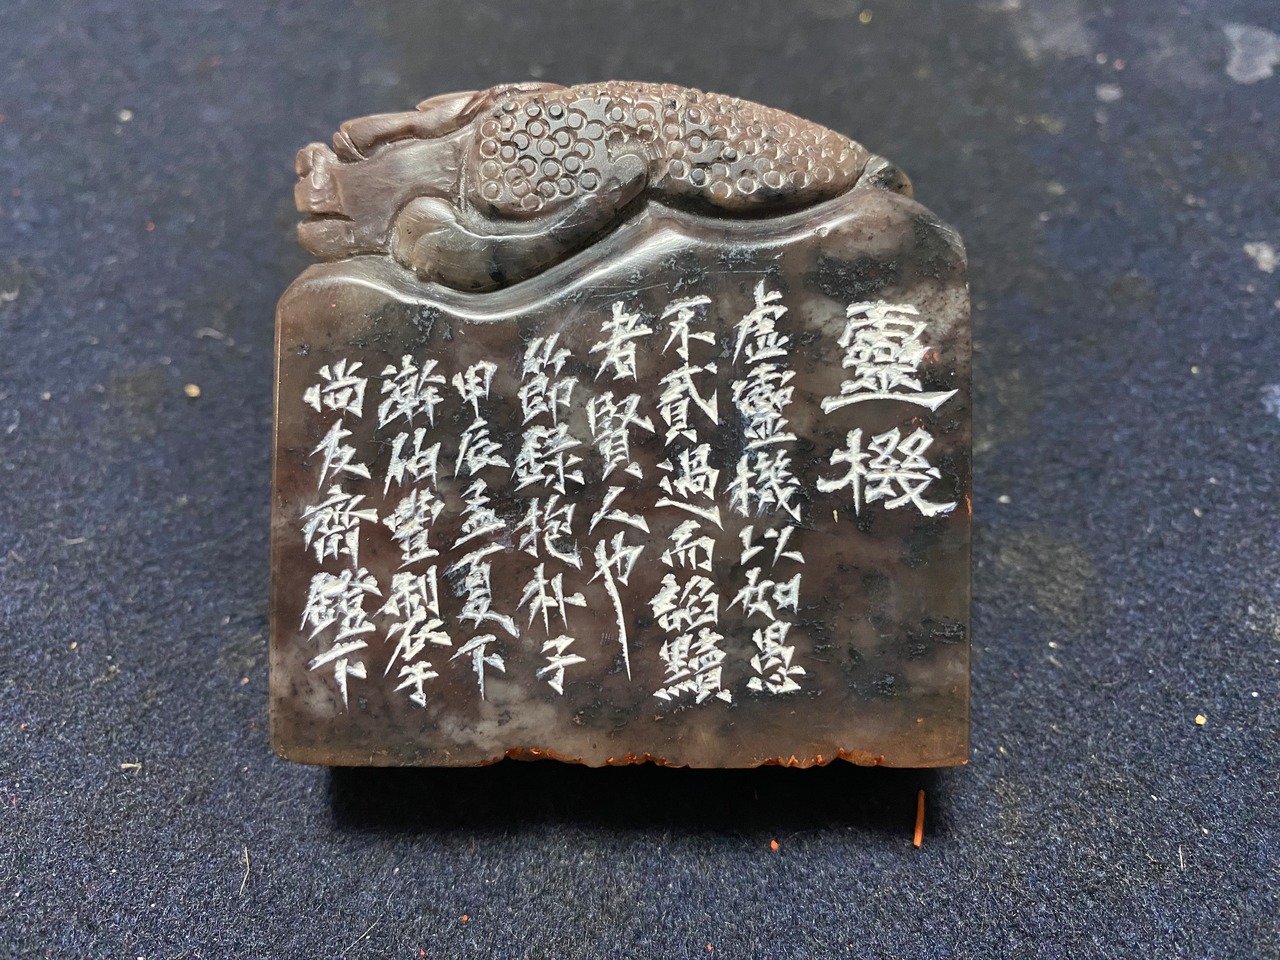 靈機
虛靈機以如愚
不貳過而諂黷
者賢人也
節錄抱朴子
甲辰孟夏下
澣柏豐製于
尚友齋鐙下